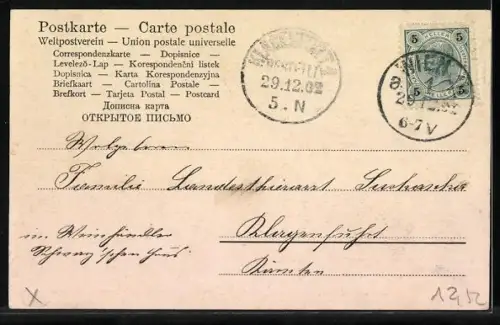 Postkarte — Carte postale
Weltpostverein — Union postale universelle
Correspondenzkarte — Dopisnice —
Levelező-Lap — Korespondenční lístek
Dopisnica — Karta Korespondenzyjna
Briefkaart — Cartolina Postale —
Brefkort — Tarjeta Postal — Postcard
Дописна карта
ОТКРЫТОЕ ПИСЬМО
29.12.02
5. N
5 5
5 5
WIEN
29.12.02
6-7V
Familie Landesthierarzt
im Weinhändler
Klagenfuhrt
Kärnten
X
12,52